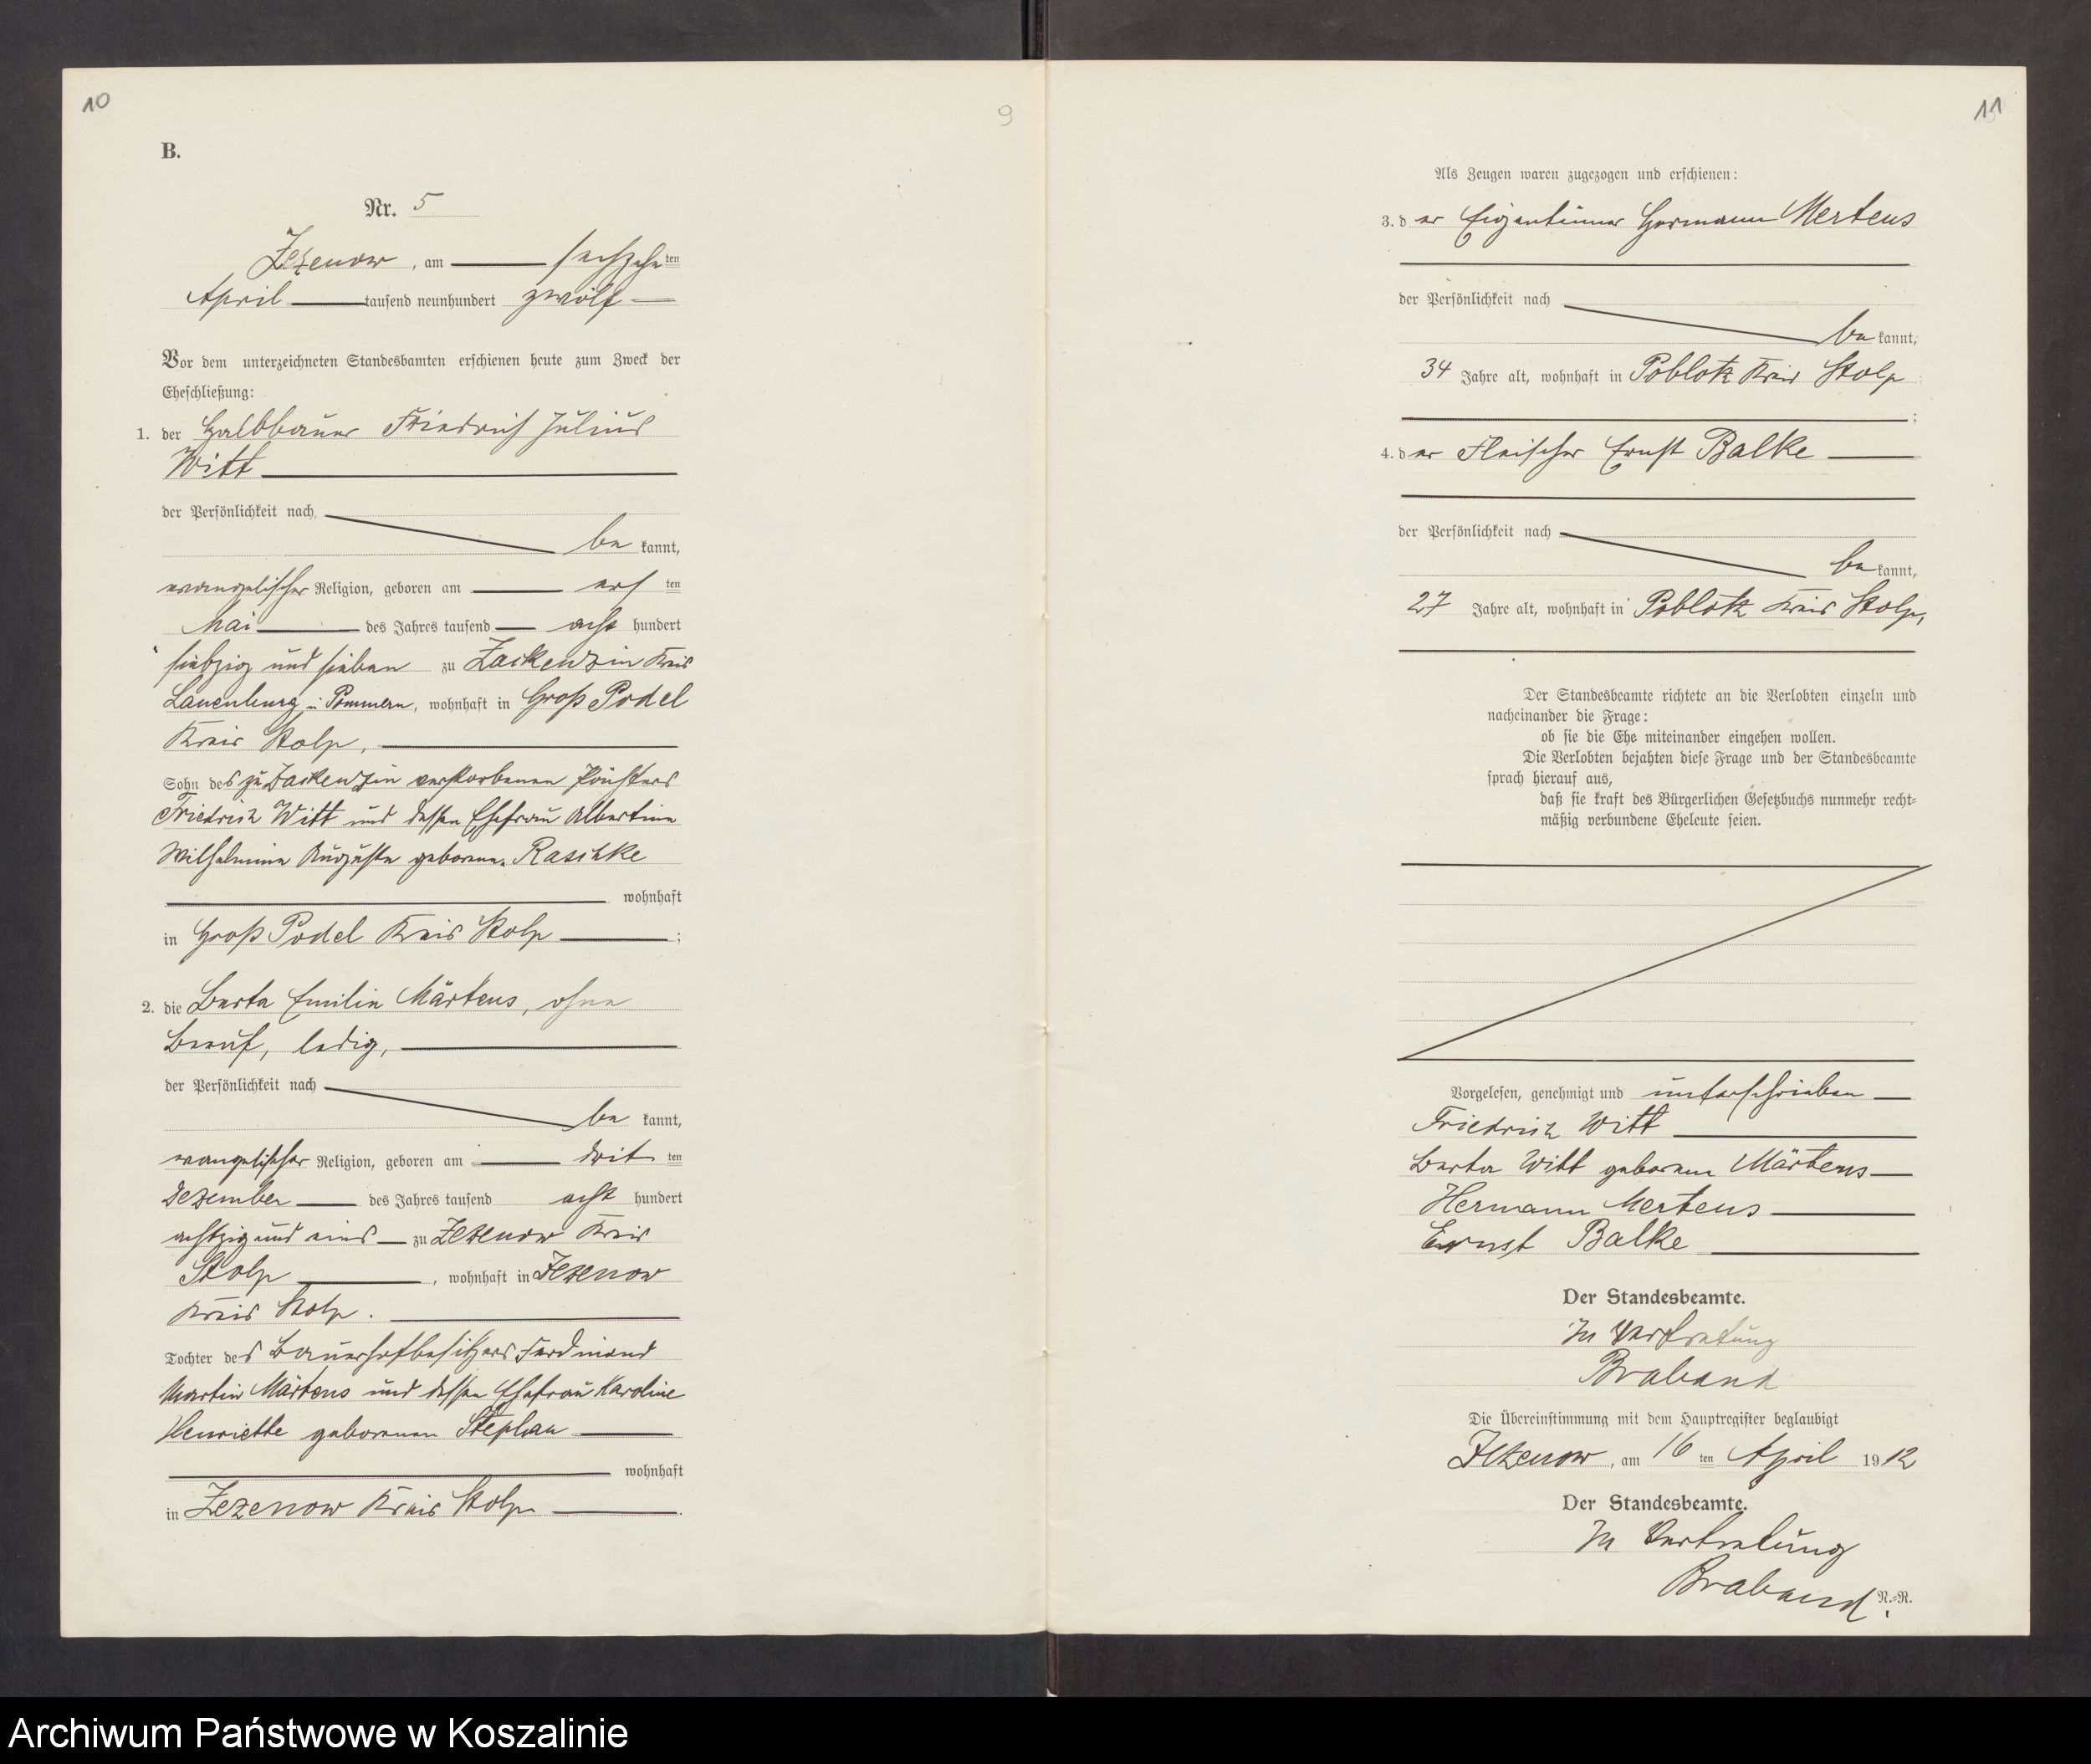 10
9
B.
Nr. 5
Zezenow, am sechzehnten
April tausend neunhundert zwölf
Vor dem unterzeichneten Standesbamten erschienen heute zum Zweck der
Eheschließung:
1. der Halbbauer Friedrich Julius
Witt
der Persönlichkeit nach
be kannt,
evangelischer Religion, geboren am ersten
Mai des Jahres tausend acht hundert
siebzig und sieben zu Zackenzin Kreis
Lauenburg i. Pommern, wohnhaft in Groß Podel
Kreis Stolp,
Sohn des zu Zackenzin verstorbenen
Friedrich Witt und dessen Ehefrau Albertine
Wilhelmine Auguste geborene Raschke
wohnhaft
in Groß Podel Kreis Stolp ;
2. die Berta Emilie Märtens, ohne
Beruf, ledig,
der Persönlichkeit nach
be kannt,
evangelischer Religion, geboren am dritten
Dezember des Jahres tausend acht hundert
achtzig und eins zu Zezenow Kreis
Stolp, wohnhaft in Zezenow
Kreis Stolp.
Tochter des Bauerhofbesitzers Ferdinand
Martin Märtens und dessen Ehefrau Karoline
Henriette geborenen Stephan
wohnhaft
in Zezenow Kreis Stolp.
11
Als Zeugen waren zugezogen und erschienen:
3. der Eigentümer Hermann Mertens
der Persönlichkeit nach
be kannt,
34 Jahre alt, wohnhaft in Poblotz Kreis Stolp
;
4. der Fleischer Ernst Balke
der Persönlichkeit nach
be kannt,
27 Jahre alt, wohnhaft in Poblotz Kreis Stolp,
Der Standesbeamte richtete an die Verlobten einzeln und
nacheinander die Frage:
ob sie die Ehe miteinander eingehen wollen.
Die Verlobten bejahten diese Frage und der Standesbeamte
sprach hierauf aus,
daß sie kraft des Bürgerlichen Gesetzbuchs nunmehr recht-
mäßig verbundene Eheleute seien.
Vorgelesen, genehmigt und unterschrieben
Friedrich Witt
Berta Witt geborene Märtens
Hermann Mertens
Ernst Balke
Der Standesbeamte.
In Vertretung
Braband
Die Übereinstimmung mit dem Hauptregister beglaubigt
Zezenow, am 16ten April 1912
Der Standesbeamte.
In Vertretung
Braband.
N.-R.
Archiwum Państwowe w Koszalinie